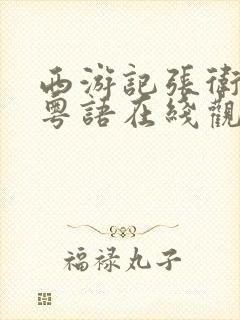 西游記張衛
粵語在綫觀
福禄丸子